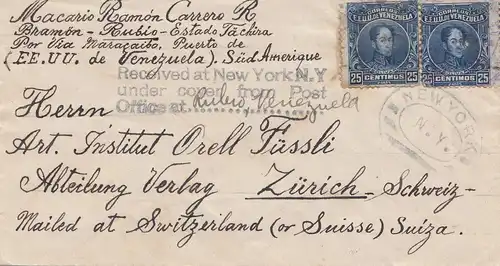 Macario Ramón Carrero R
Bramón - Rubio - Estado Táchira
Por Vía Maracaibo, Puerto de
(EE.UU. de Venezuela). Süd Amerique
CORREOS
EE.UU. DE VENEZUELA
25 CENTIMOS 25
CORREOS
EE.UU. DE VENEZUELA
25 CENTIMOS 25
Received at New York N.Y
under cover from Post
Office at Rubio, Venezuela
NEW YORK
N.Y.
Herrn
Art. Institut Orell Füssli
Abteilung Verlag Zürich - Schweiz -
Mailed at Switzerland (or Suisse) Suiza.